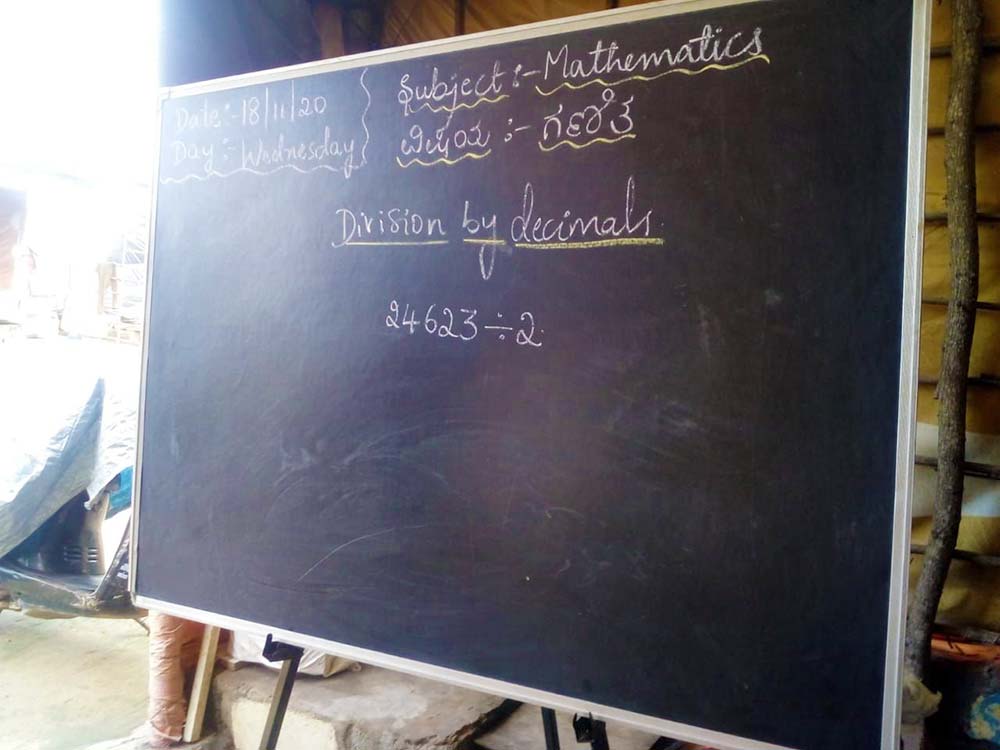 Date:-18/11/20
Day:-Wednesday
Subject:-Mathematics
ವಿಷಯ:-ಗಣಿತ
Division by decimals.
24623÷2.